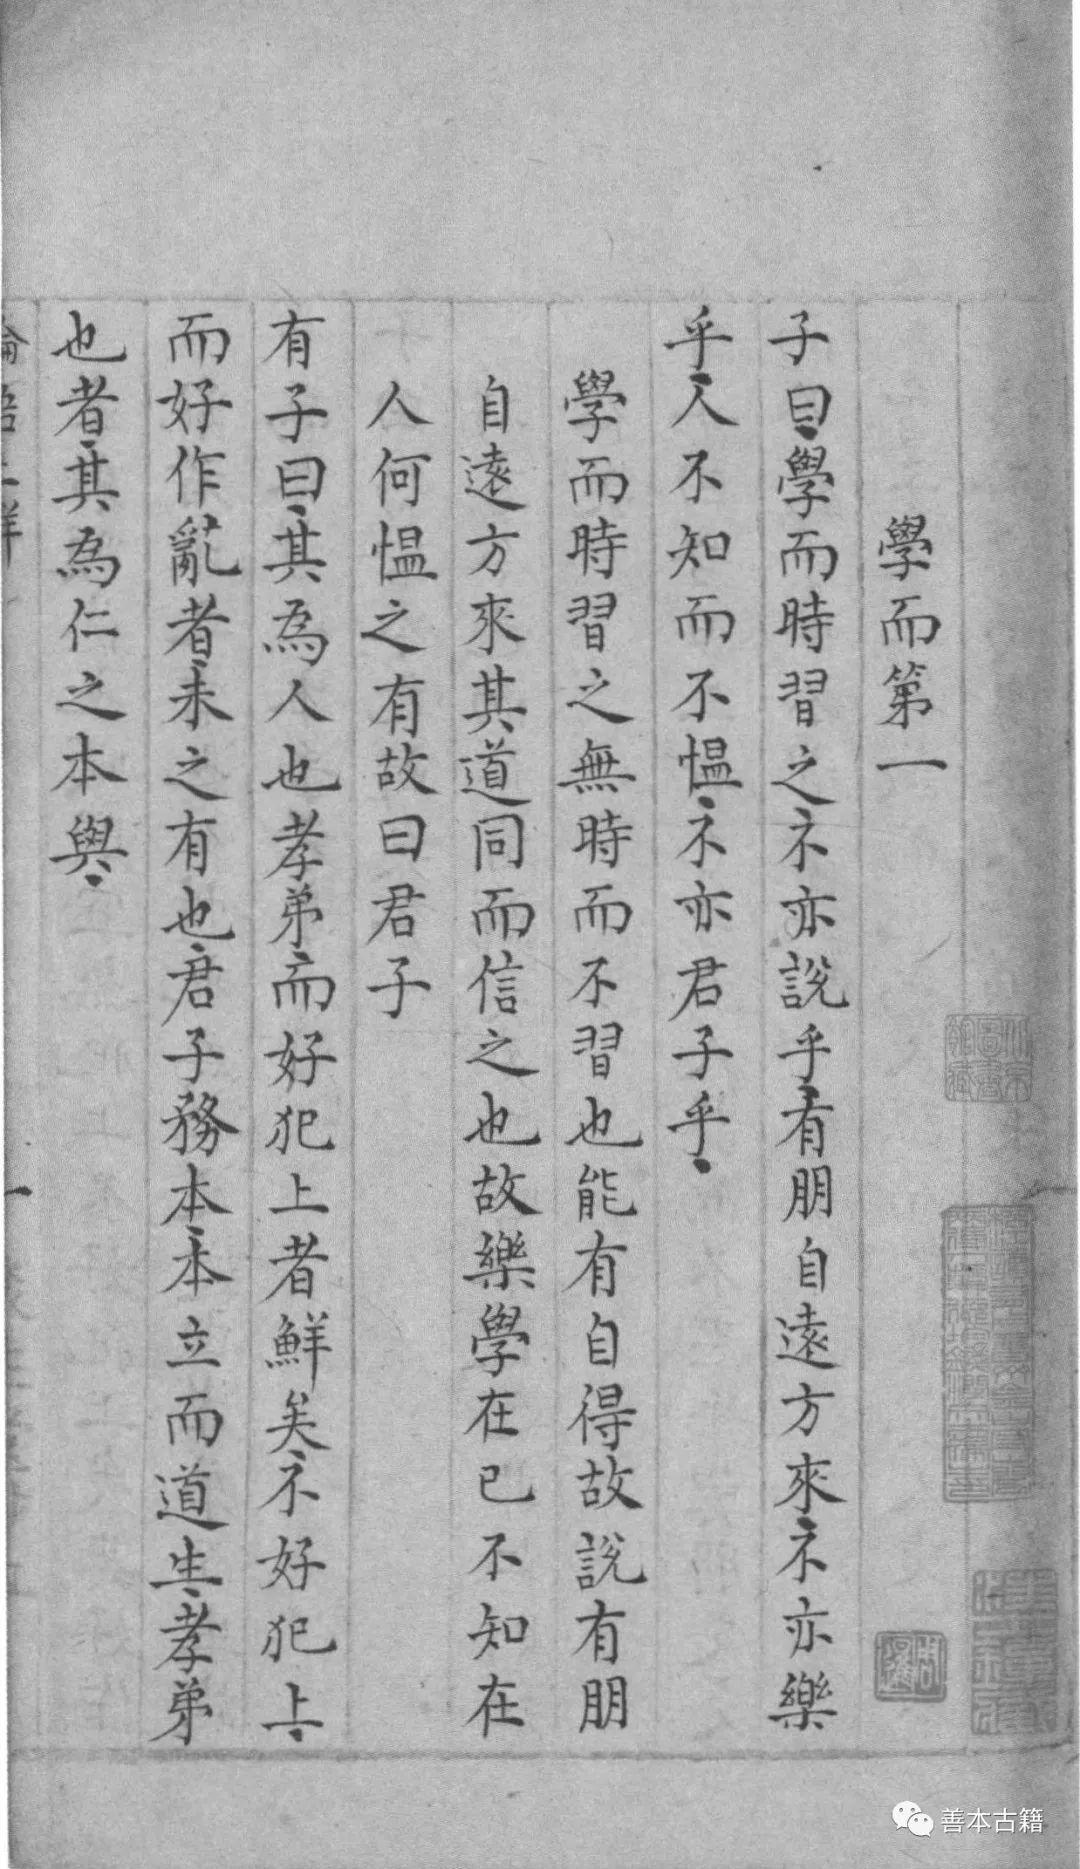 學而第一
子曰學而時習之不亦說乎有朋自遠方來不亦樂
乎人不知而不愠不亦君子乎
學而時習之無時而不習也能有自得故說有朋
自遠方來其道同而信之也故樂學在已不知在
人何愠之有故曰君子
有子曰其為人也孝弟而好犯上者鮮矣不好犯上
而好作亂者未之有也君子務本本立而道生孝弟
也者其為仁之本與
一
善本古籍